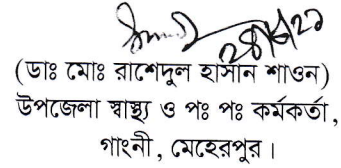 (ডাঃ মোঃ রাশেদুল হাসান শাওন)
উপজেলা স্বাস্থ্য ও পঃ পঃ কর্মকর্তা,
গাংনী, মেহেরপুর।